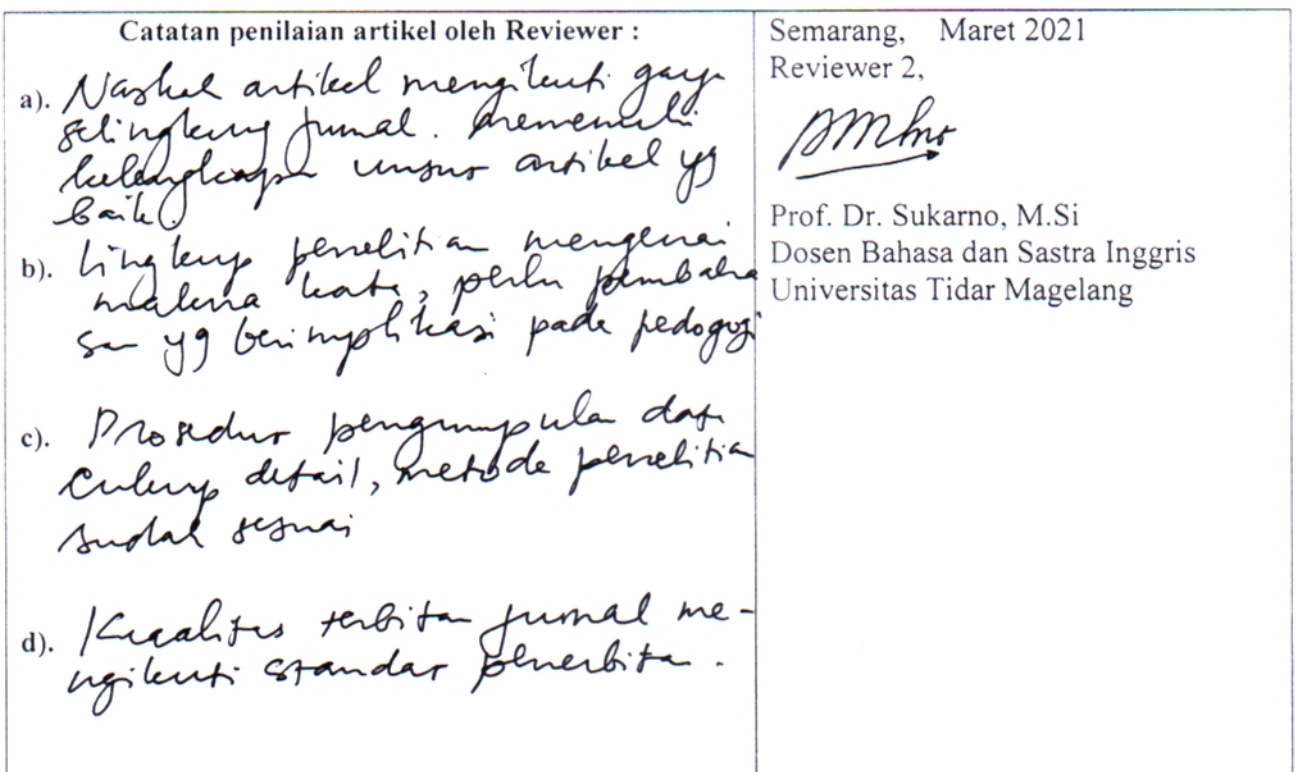 Catatan penilaian artikel oleh Reviewer :
a). Naskah artikel mengikuti gaya
selingkung jurnal. Memenuhi
kelengkapan unsur artikel yg
baik.
b). Lingkup penelitian mengenai
makna kata, perlu pembaha
san yg berimplikasi pada pedogogi
c). Prosedur pengumpulan data
cukup detail, metode penelitian
sudah sesuai
d). Kualitas terbitan jurnal me-
ngikuti standar penerbitan.
Semarang, Maret 2021
Reviewer 2,
Prof. Dr. Sukarno, M.Si
Dosen Bahasa dan Sastra Inggris
Universitas Tidar Magelang